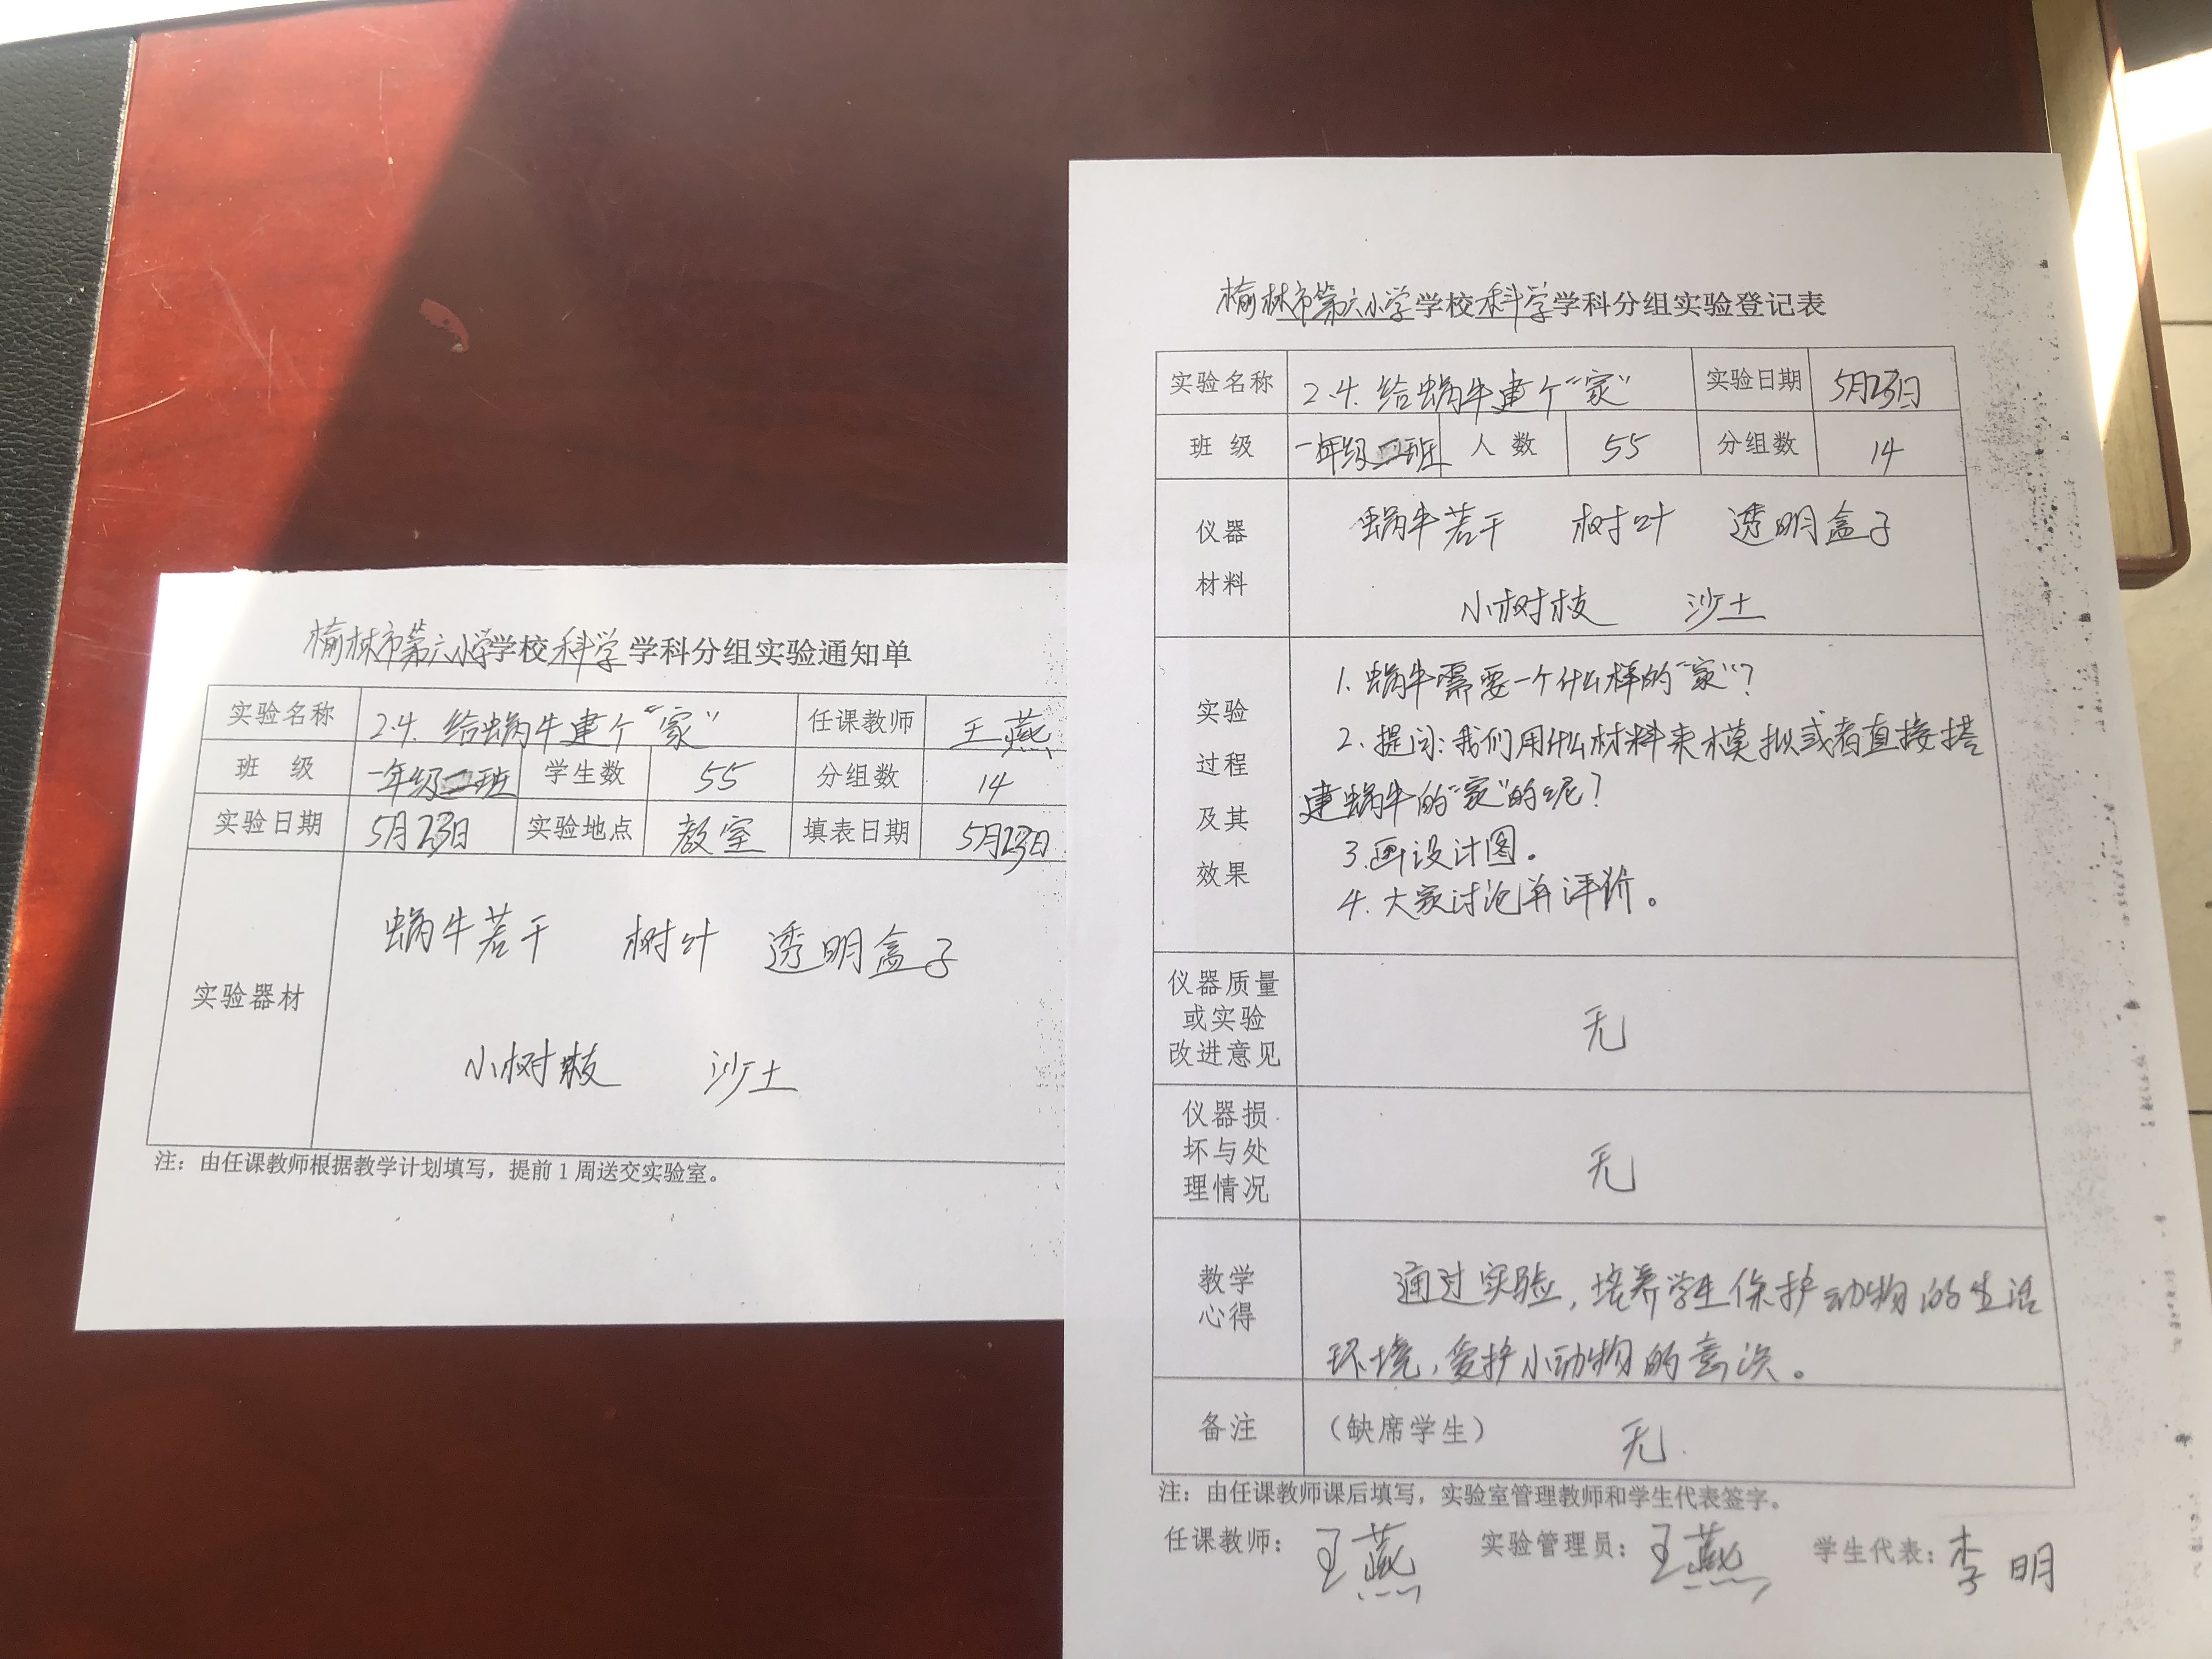 榆林市第六小学学校科学学科分组实验通知单
实验名称 2.4.给蜗牛建个“家” 任课教师 王燕
班 级 一年级二班 学生数 55 分组数 14
实验日期 5月23日 实验地点 教室 填表日期 5月23日
实验器材
蜗牛若干 树叶 透明盒子
小树枝 沙土
注：由任课教师根据教学计划填写，提前1周送交实验室。
榆林市第六小学学校科学学科分组实验登记表
实验名称 2.4.给蜗牛建个“家” 实验日期 5月23日
班 级 一年级二班 人 数 55 分组数 14
仪器
材料
蜗牛若干 树叶 透明盒子
小树枝 沙土
实验
过程
及其
效果
1.蜗牛需要一个什么样的“家”？
2.提问：我们用什么材料来模拟或者直接搭
建蜗牛的“家”的呢？
3.画设计图。
4.大家讨论并评价。
仪器质量
或实验
改进意见
无
仪器损
坏与处
理情况
无
教学
心得
通过实验，培养学生保护动物的生活
环境，爱护小动物的意识。
备注 （缺席学生） 无.
注：由任课教师课后填写，实验室管理教师和学生代表签字。
任课教师：王燕 实验管理员：王燕 学生代表：李明